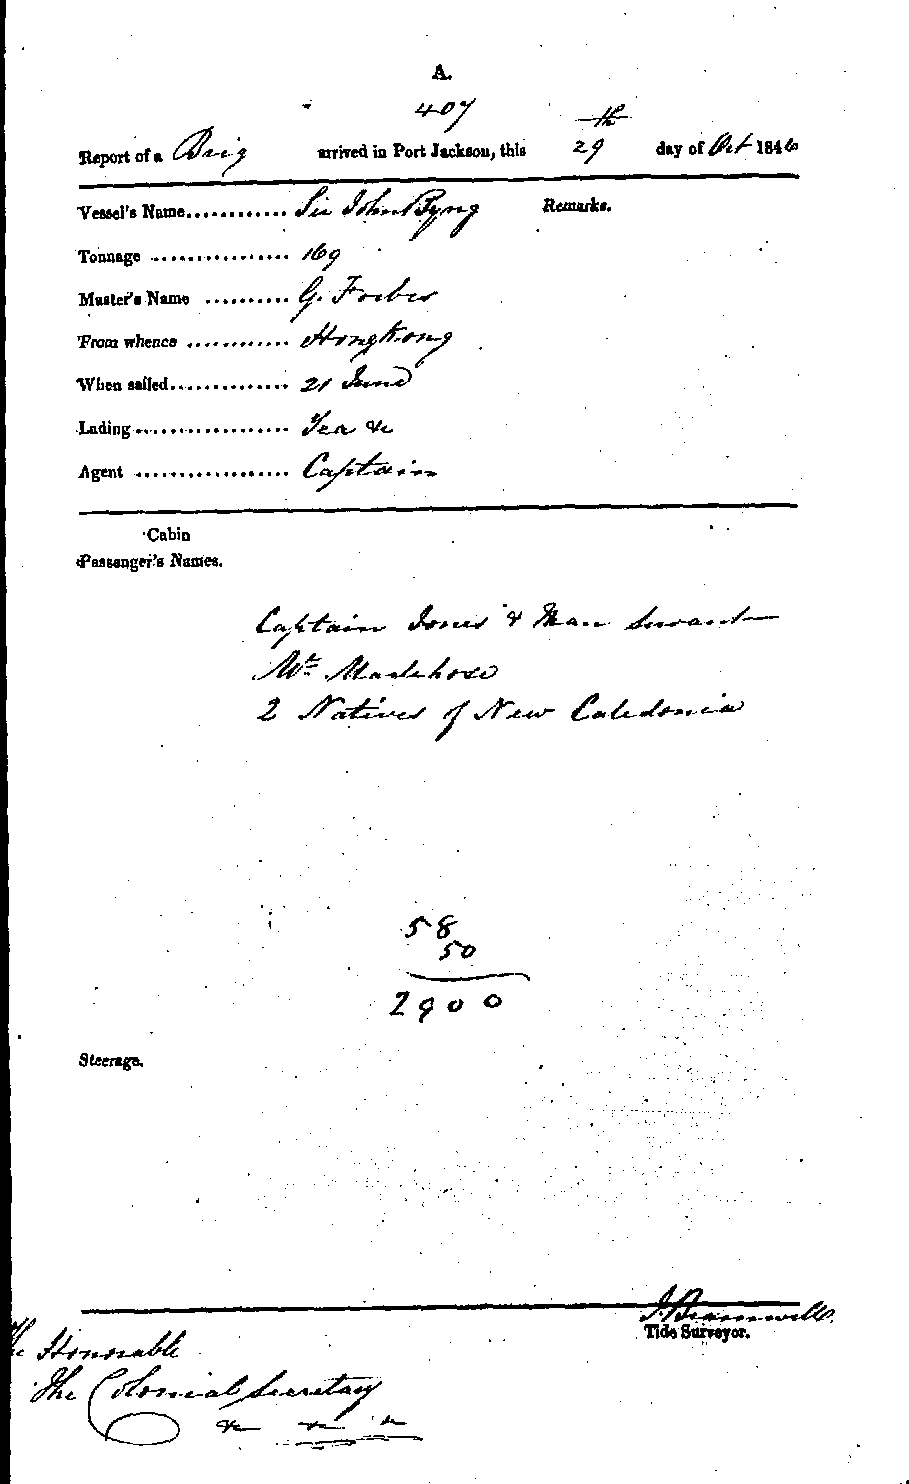 A.
407
Report of a Brig arrived in Port Jackson, this 29th day of Oct 1846
Vessel's Name............ Sir John Byng Remarks.
Tonnage ................ 169
Master's Name .......... G. Forbes
From whence ............ HongKong
When sailed.............. 21 June
Lading.................. Tea &c
Agent .................. Captain
Cabin
Passenger's Names.
Captain Jones & Man Servant
Mr.
2 Natives of New Caledonia
58
50
2900
Steerage.
J. Bramwell
Tide Surveyor.
The Honorable
The Colonial Secretary
&c &c &c